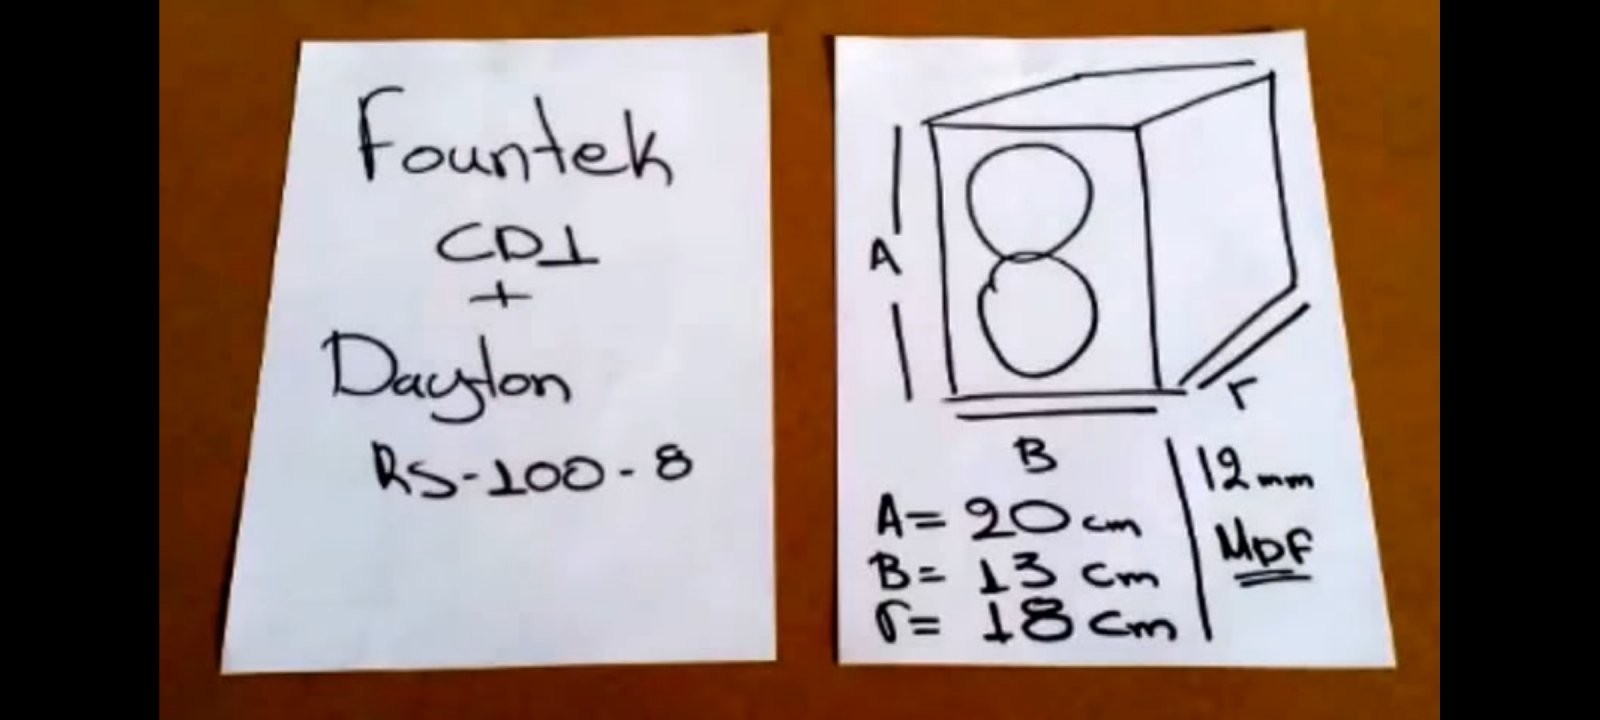 Fountek
CD1
+
Dayton
RS-100-8
A
Γ
B
A= 20 cm
B= 13 cm
Γ= 18 cm
12mm
MDF